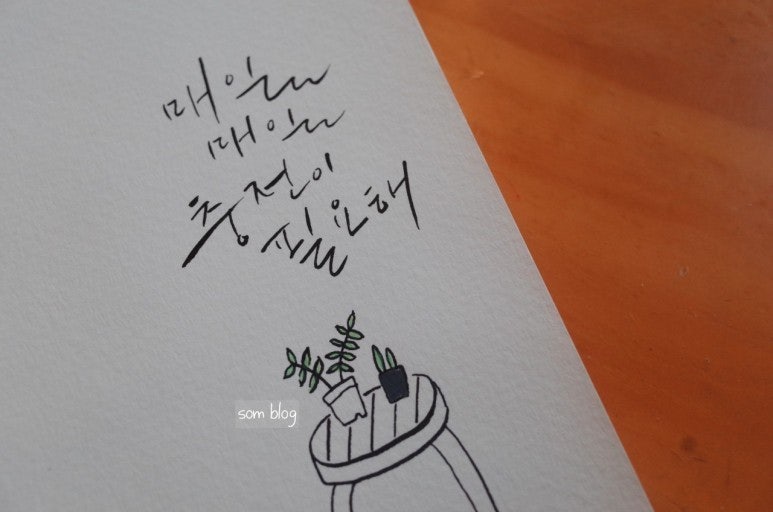 매일
매일
충전이
필요해
som blog